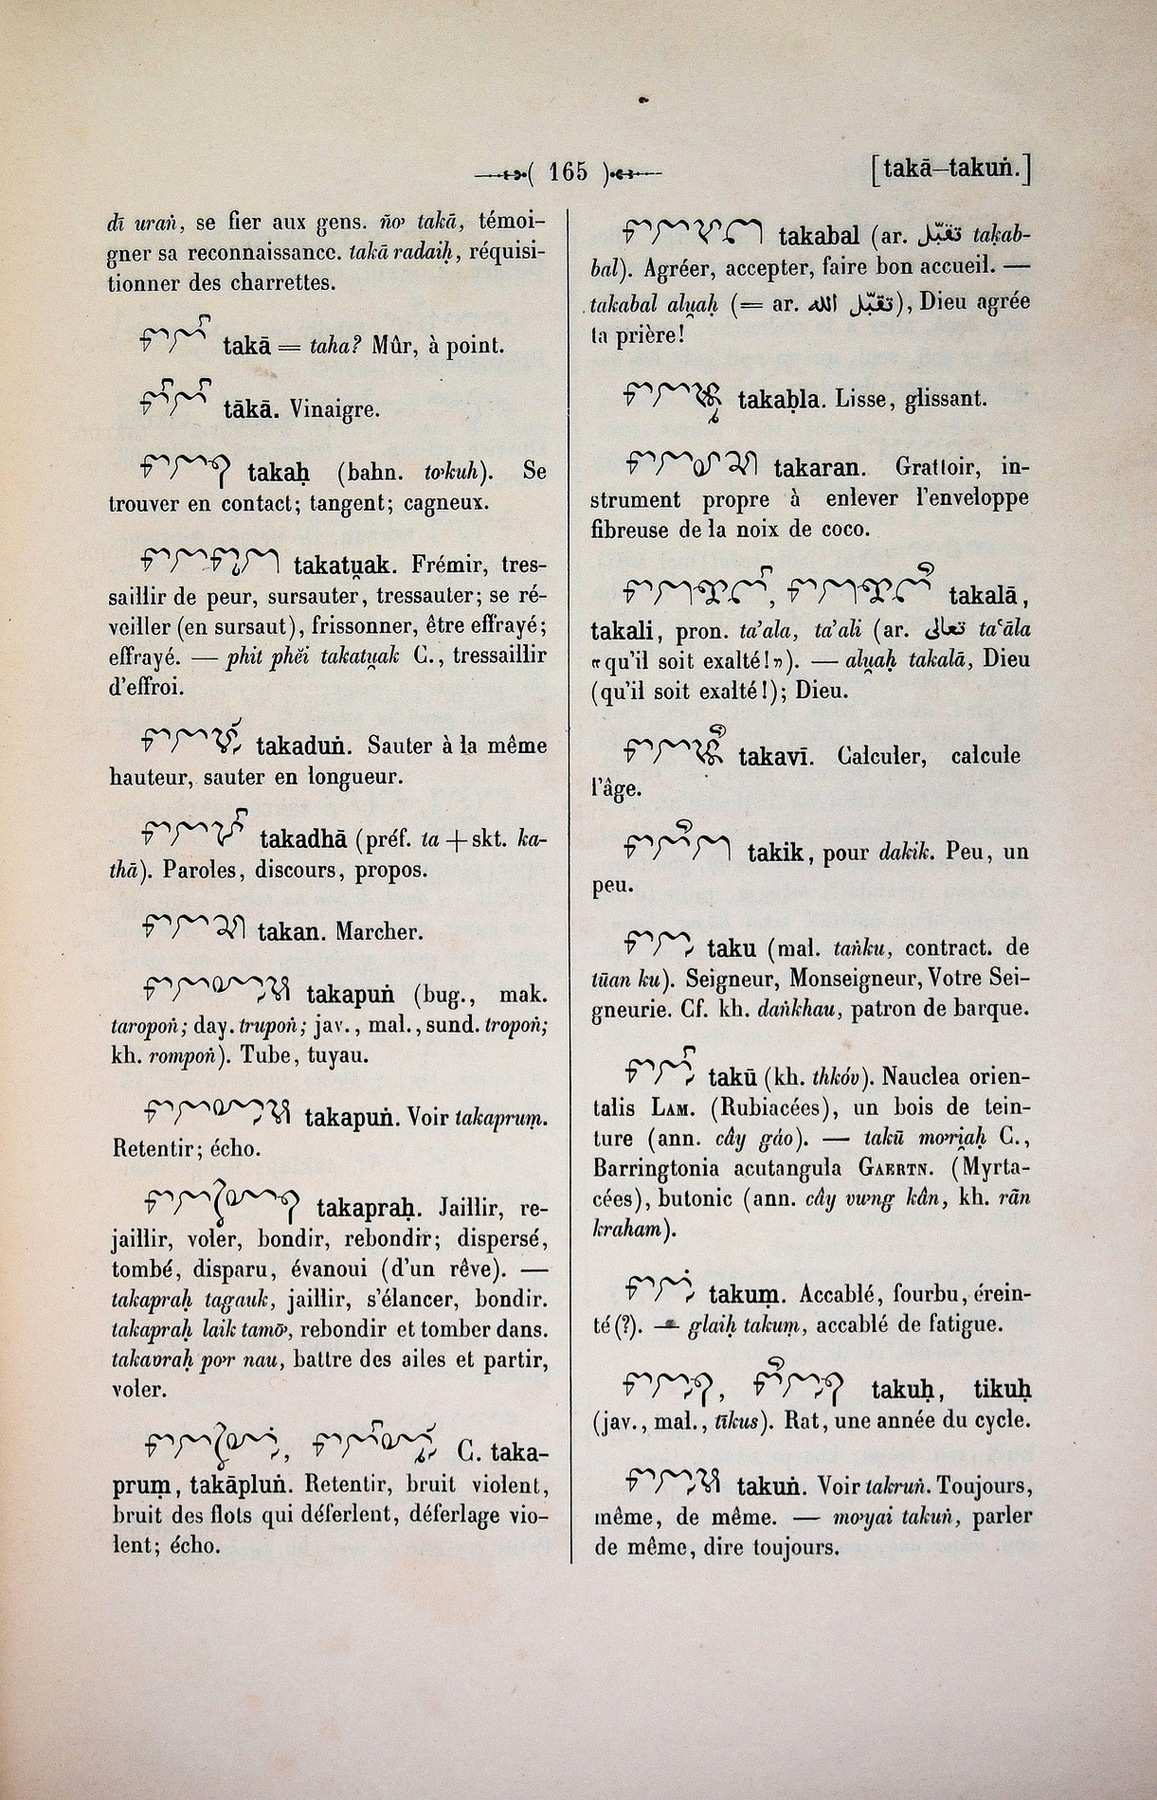 165
[takā—takuṅ.]
dī uraṅ, se fier aux gens. ño̓ takā, témoi-
gner sa reconnaissance. takā radaiḥ, réquisi-
tionner des charrettes.
takā = taha? Mûr, à point.
tākā. Vinaigre.
takaḥ (bahn. to̓kuh). Se
trouver en contact; tangent; cagneux.
takatu̯ak. Frémir, tres-
saillir de peur, sursauter, tressauter; se ré-
veiller (en sursaut), frissonner, être effrayé;
effrayé. — phit phĕi takatu̯ak C., tressaillir
d'effroi.
takaduṅ. Sauter à la même
hauteur, sauter en longueur.
takadhā (préf. ta + skt. ka-
thā). Paroles, discours, propos.
takan. Marcher.
takapuṅ (bug., mak.
taropoṅ; day. trupoṅ; jav., mal., sund. tropoṅ;
kh. rompoṅ). Tube, tuyau.
takapuṅ. Voir takapruṃ.
Retentir; écho.
takapraḥ. Jaillir, re-
jaillir, voler, bondir, rebondir; dispersé,
tombé, disparu, évanoui (d'un rêve). —
takapraḥ tagauk, jaillir, s'élancer, bondir.
takapraḥ laik tamō̓, rebondir et tomber dans.
takapraḥ po̓r nau, battre des ailes et partir,
voler.
C. taka-
pruṃ, takāpluṅ. Retentir, bruit violent,
bruit des flots qui déferlent, déferlage vio-
lent; écho.
takabal (ar. تقبّل takab-
bal). Agréer, accepter, faire bon accueil. —
takabal alu̯aḥ (= ar. تقبّل الله), Dieu agrée
ta prière!
takaḅla. Lisse, glissant.
takaran. Grattoir, in-
strument propre à enlever l'enveloppe
fibreuse de la noix de coco.
takalā,
takali, pron. ta'ala, ta'ali (ar. تعالى taʿāla
«qu'il soit exalté!»). — alu̯aḥ takalā, Dieu
(qu'il soit exalté!); Dieu.
takavī. Calculer, calcule
l'âge.
takik, pour dakik. Peu, un
peu.
taku (mal. taṅku, contract. de
tūan ku). Seigneur, Monseigneur, Votre Sei-
gneurie. Cf. kh. daṅkhau, patron de barque.
takū (kh. thkóv). Nauclea orien-
talis LAM. (Rubiacées), un bois de tein-
ture (ann. cây gáo). — takū mo̓ri̯aḥ C.,
Barringtonia acutangula GAERTN. (Myrta-
cées), butonic (ann. cây vưng kân, kh. rān
kraham).
takuṃ. Accablé, fourbu, érein-
té (?). — glaiḥ takuṃ, accablé de fatigue.
takuḥ, tikuḥ
(jav., mal., tīkus). Rat, une année du cycle.
takuṅ. Voir takruṅ. Toujours,
même, de même. — mo̓yai takuṅ, parler
de même, dire toujours.